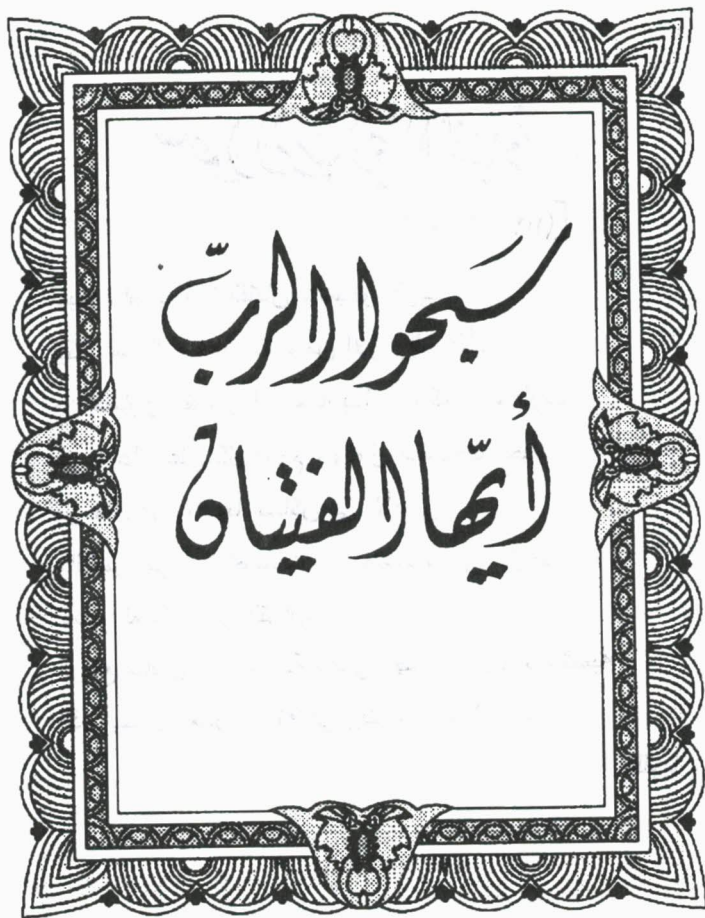 سَبحوا الربّ
أيّها الفتيان